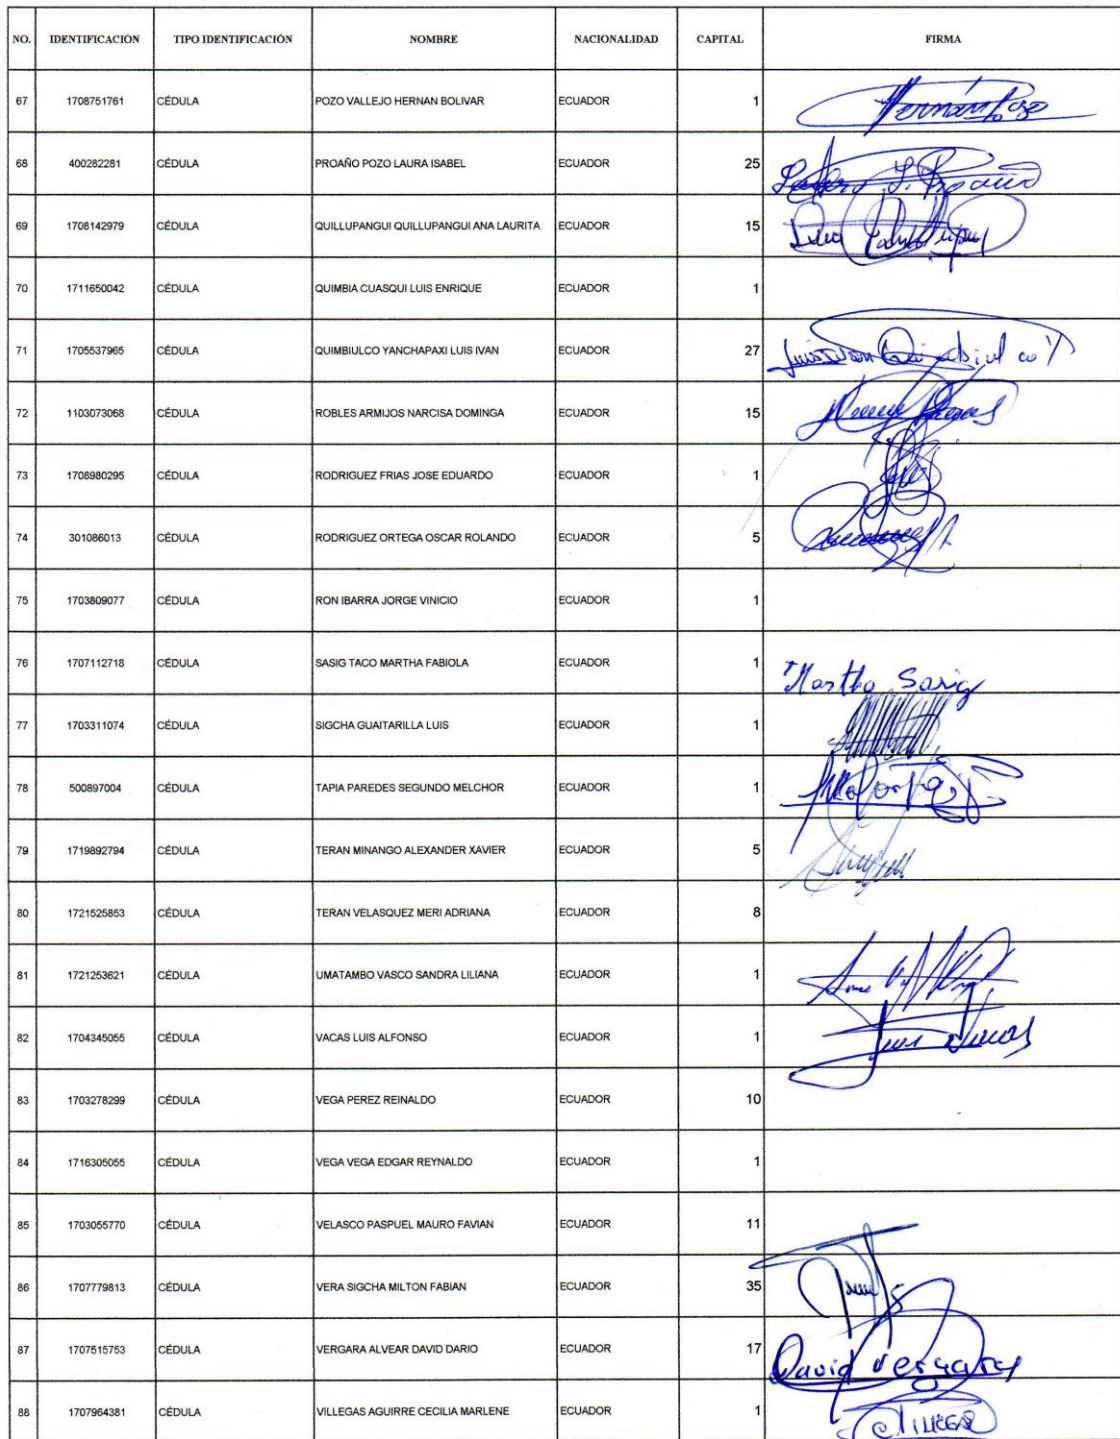 NO. IDENTIFICACIÓN TIPO IDENTIFICACIÓN NOMBRE NACIONALIDAD CAPITAL FIRMA
67 1708751761 CÉDULA POZO VALLEJO HERNAN BOLIVAR ECUADOR 1 Hernán Pozo
68 400282281 CÉDULA PROAÑO POZO LAURA ISABEL ECUADOR 25 Laura I. Proaño
69 1708142979 CÉDULA QUILLUPANGUI QUILLUPANGUI ANA LAURITA ECUADOR 15
70 1711650042 CÉDULA QUIMBIA CUASQUI LUIS ENRIQUE ECUADOR 1
71 1705537965 CÉDULA QUIMBIULCO YANCHAPAXI LUIS IVAN ECUADOR 27
72 1103073068 CÉDULA ROBLES ARMIJOS NARCISA DOMINGA ECUADOR 15
73 1708980295 CÉDULA RODRIGUEZ FRIAS JOSE EDUARDO ECUADOR 1
74 301086013 CÉDULA RODRIGUEZ ORTEGA OSCAR ROLANDO ECUADOR 5
75 1703809077 CÉDULA RON IBARRA JORGE VINICIO ECUADOR 1
76 1707112718 CÉDULA SASIG TACO MARTHA FABIOLA ECUADOR 1 Martha Sasig
77 1703311074 CÉDULA SIGCHA GUAITARILLA LUIS ECUADOR 1
78 500897004 CÉDULA TAPIA PAREDES SEGUNDO MELCHOR ECUADOR 1
79 1719892794 CÉDULA TERAN MINANGO ALEXANDER XAVIER ECUADOR 5
80 1721525853 CÉDULA TERAN VELASQUEZ MERI ADRIANA ECUADOR 8
81 1721253621 CÉDULA UMATAMBO VASCO SANDRA LILIANA ECUADOR 1
82 1704345055 CÉDULA VACAS LUIS ALFONSO ECUADOR 1 Luis Vacas
83 1703278299 CÉDULA VEGA PEREZ REINALDO ECUADOR 10
84 1716305055 CÉDULA VEGA VEGA EDGAR REYNALDO ECUADOR 1
85 1703055770 CÉDULA VELASCO PASPUEL MAURO FAVIAN ECUADOR 11
86 1707779813 CÉDULA VERA SIGCHA MILTON FABIAN ECUADOR 35
87 1707515753 CÉDULA VERGARA ALVEAR DAVID DARIO ECUADOR 17 David Vergara
88 1707964381 CÉDULA VILLEGAS AGUIRRE CECILIA MARLENE ECUADOR 1